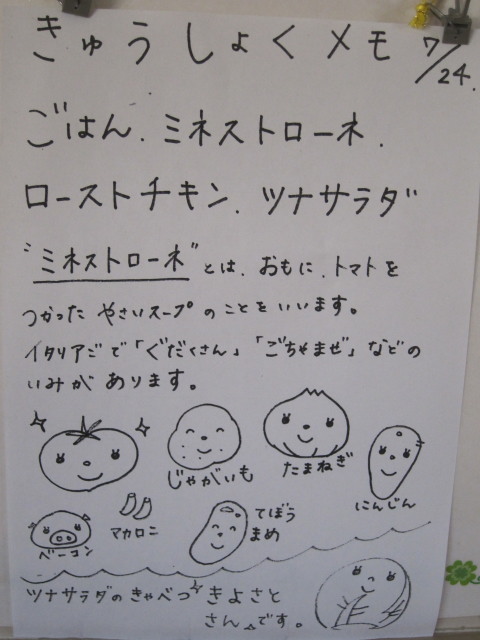 きゅうしょくメモ 7/24.
ごはん.ミネストローネ.
ローストチキン.ツナサラダ
"ミネストローネ"とは、おもに、トマトを
つかった やさいスープのことをいいます。
イタリアごで「ぐだくさん」「ごちゃまぜ」などの
いみがあります。
じゃがいも
たまねぎ
にんじん
ベーコン
マカロニ
てぼう
まめ
ツナサラダのきゃべつ きよさと
さん です。